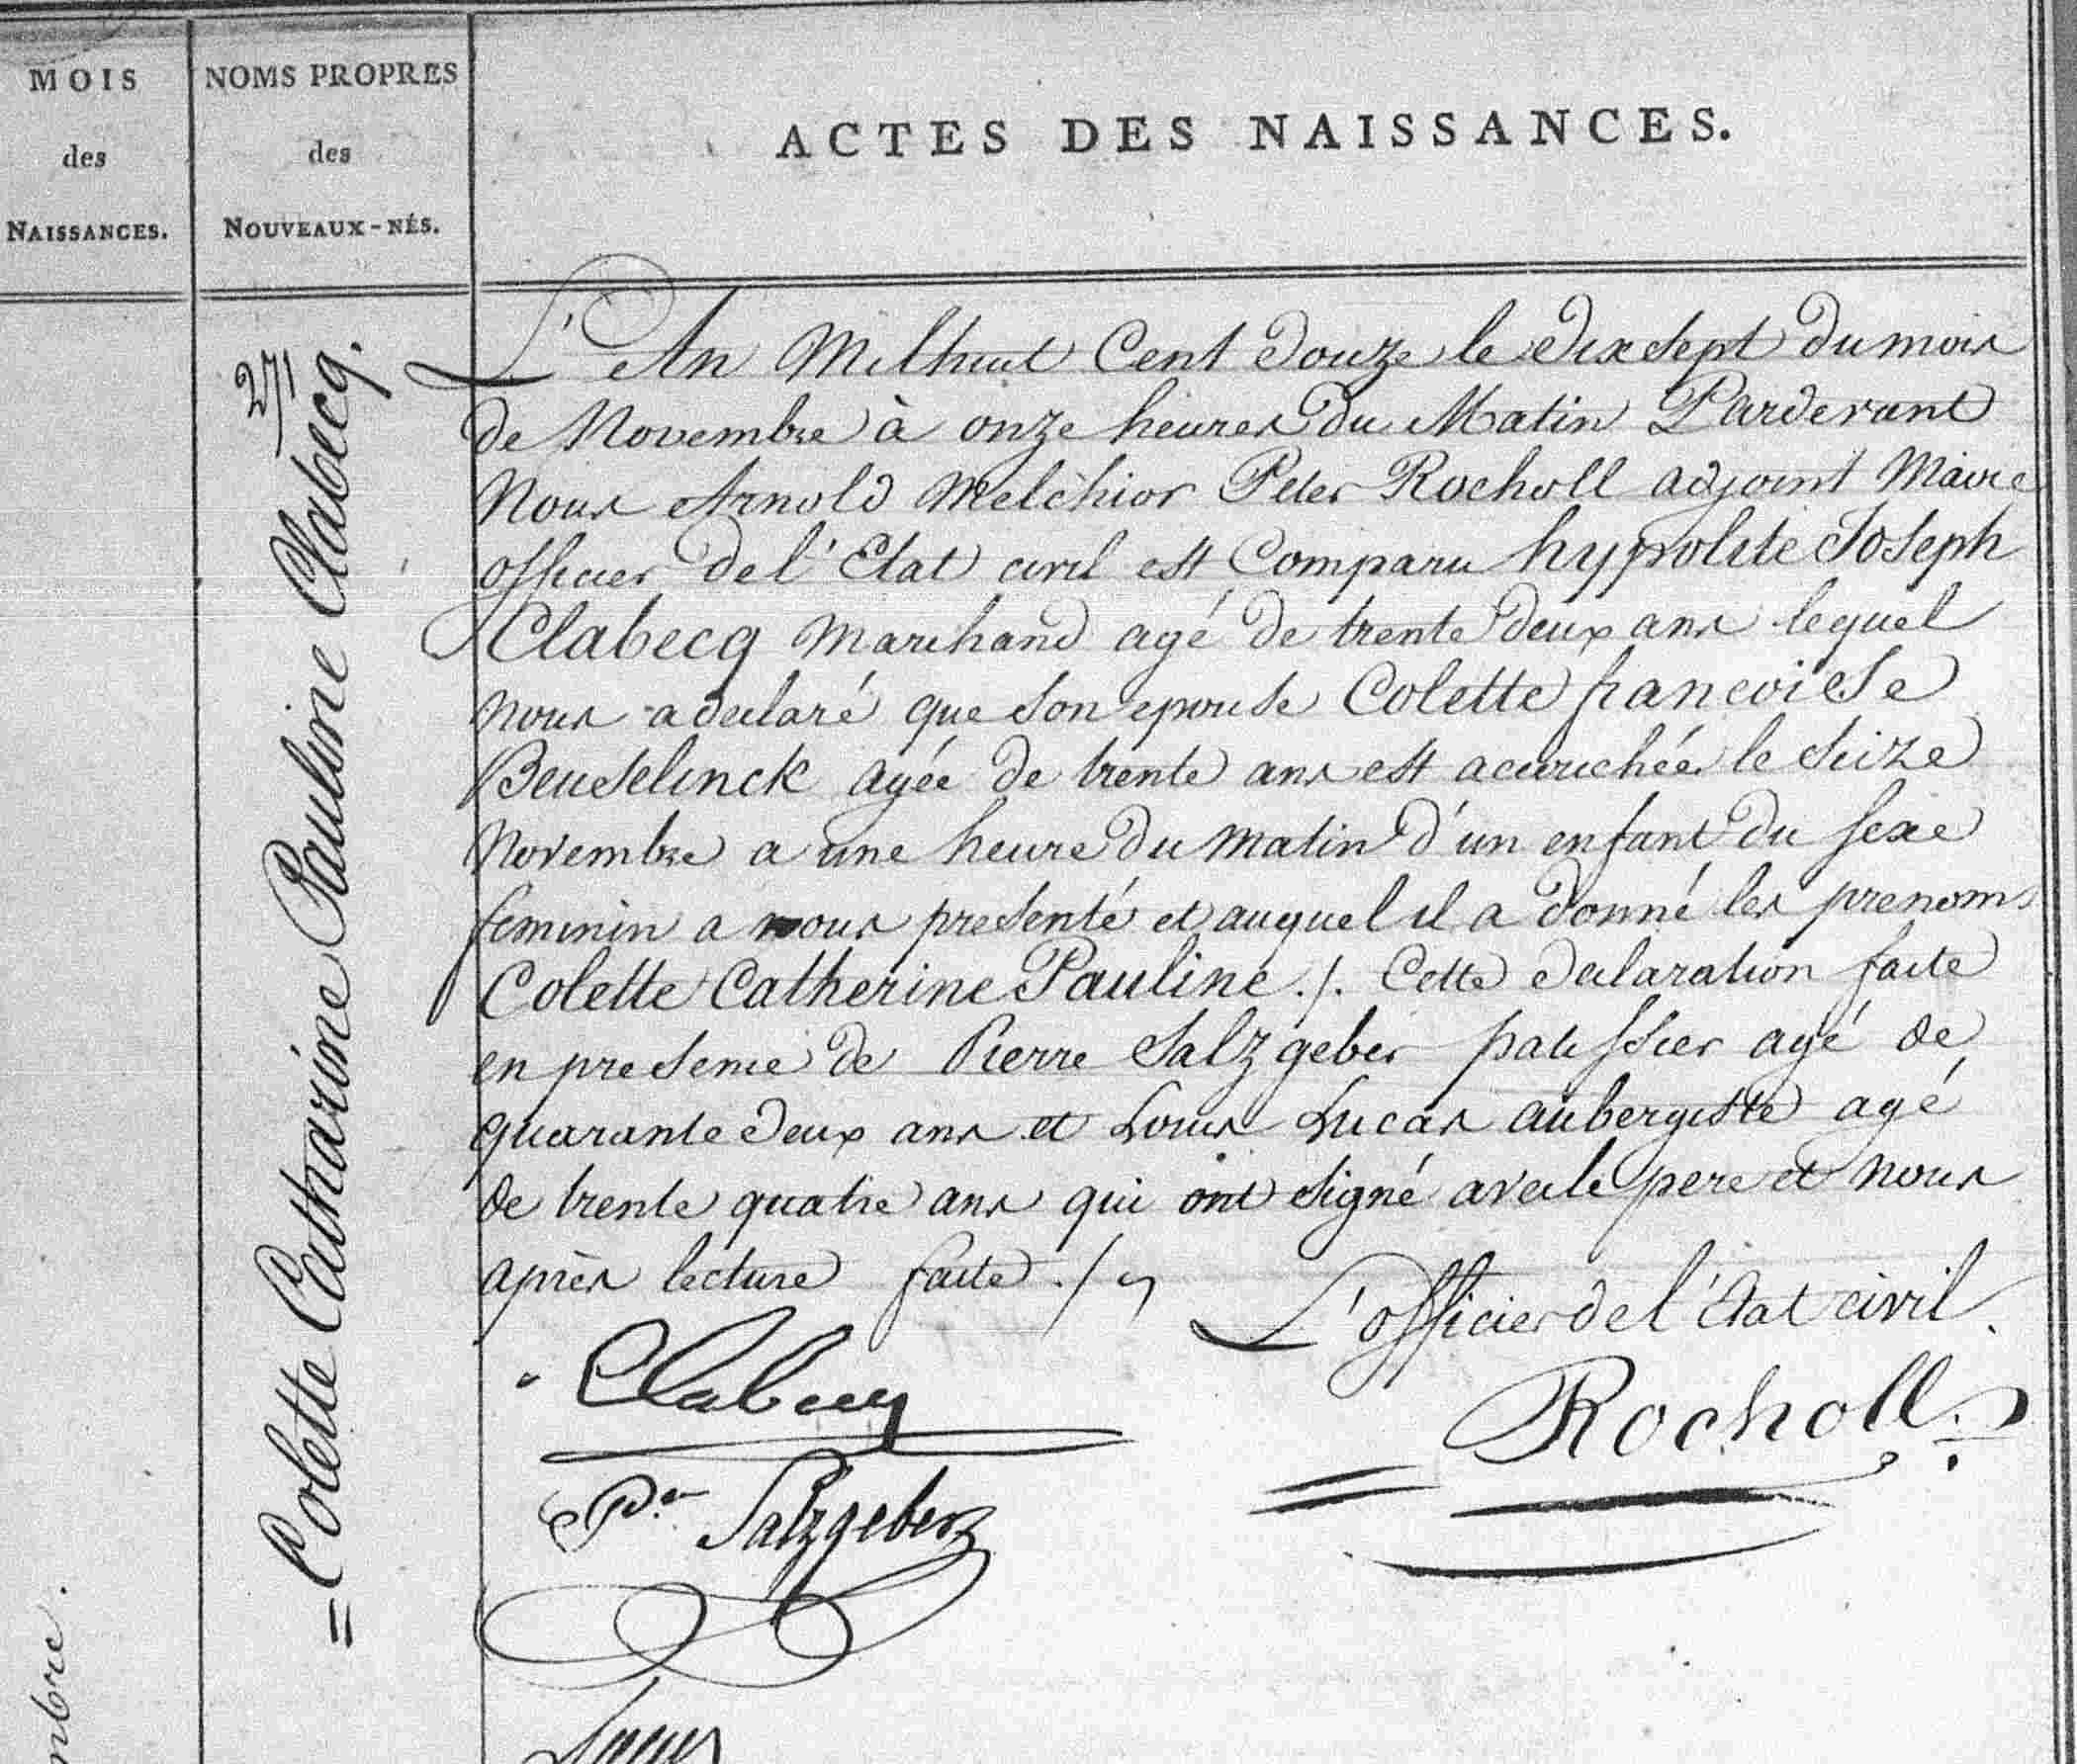 MOIS
des
NAISSANCES.
NOMS PROPRES
des
NOUVEAUX-NÉS.
ACTES DES NAISSANCES.
271
= Colette Catharine Pauline Clabecq.
L'An Milhuit Cent douze le dixsept du mois
de Novembre à onze heures du Matin Pardevant
Nous Arnold Melchior Peter Rocholl adjoint Maire
officier de l'Etat civil est Comparu hyppolite Joseph
Clabecq Marchand agé de trente deux ans lequel
nous a declaré que son epouse Colette francoiese
Beuselinck agée de trente ans est accouchée le Seize
Novembre a une heure du matin d'un enfant du sexe
feminin a nous presenté et auquel il a donné les prenoms
Colette Catherine Pauline ./. Cette declaration faite
en presence de Pierre Salzgeber patissier agé de
quarante deux ans et Louis Lucas aubergiste agé
de trente quatre ans qui ont signé avec le pere et nous
après lecture faite ./.
L'officier de l'état civil.
Clabecq
Rocholl
Per Salzgeber
Lucas
mbre.